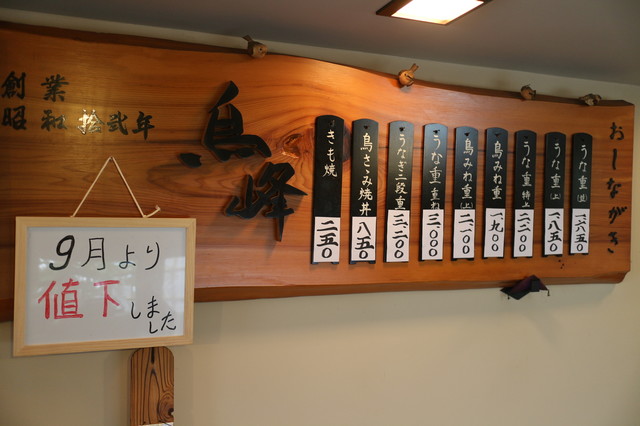 おしながき
うな重(並)
一、六五〇
うな重(上)
一、八五〇
うな重 特上
二、二〇〇
鳥みね重
一、九〇〇
鳥みね重(上)
二、一〇〇
うな重 重ね
三、〇〇〇
うなぎ二段重
三、二〇〇
鳥ささみ焼丼
八五〇
きも焼
二五〇
鳥峰
創業
昭和拾弐年
9月より
値下
しました